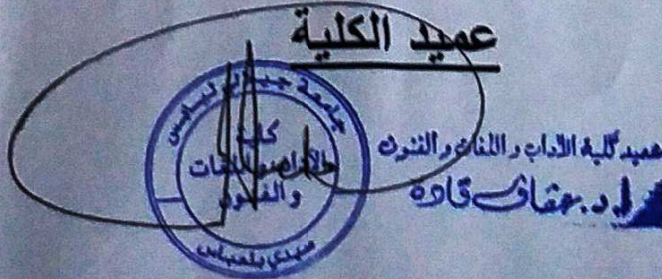 عميد الكلية
جامعة جيلالي ليابس
كلية
الآداب واللغات
والفنون
سيدي بلعباس
عميد كلية الآداب و اللغات و الفنون
أ.د. عقاق قادة